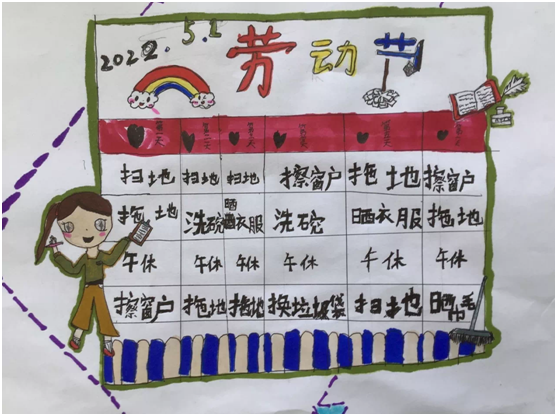 2022. 5.1
劳动节
第一天 第二天 第三天 第四天 第五天 第六天
扫地 扫地 扫地 擦窗户 拖地 擦窗户
拖地 洗碗 晒衣服 洗碗 晒衣服 拖地
午休 午休 午休 午休 午休 午休
擦窗户 拖地 拖地 换垃圾袋 扫地 晒毛巾